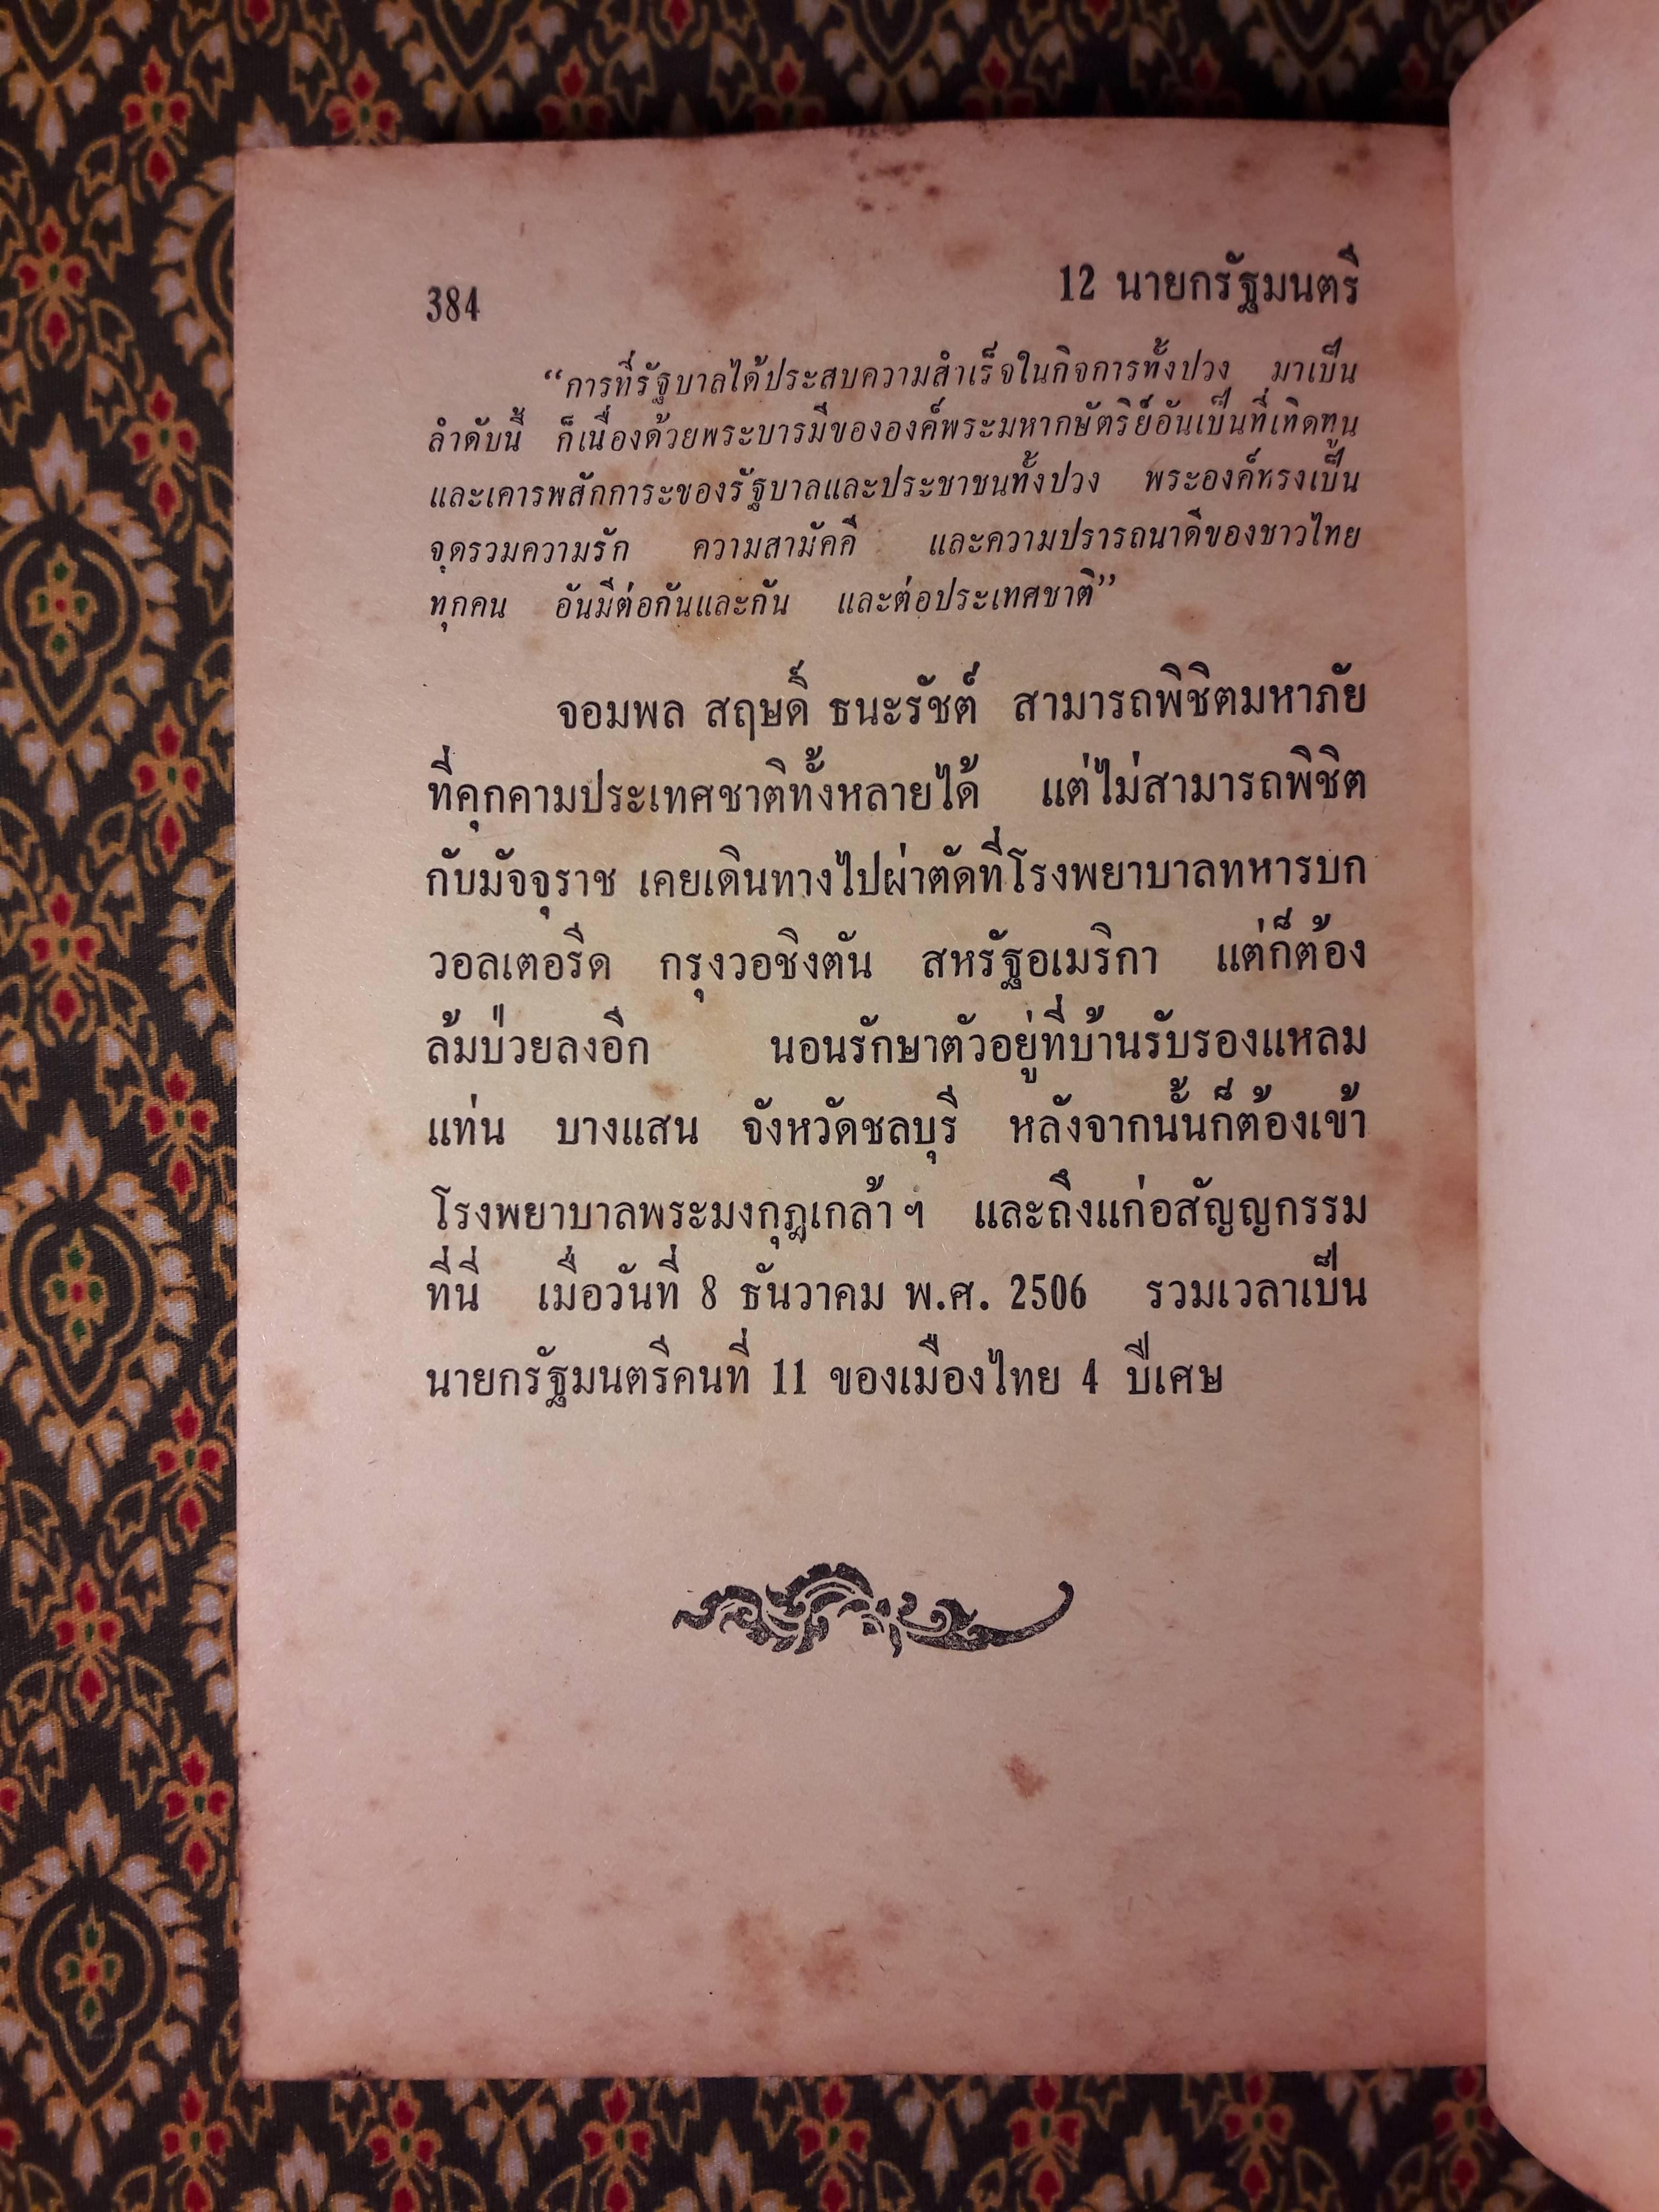 384
12 นายกรัฐมนตรี
“การที่รัฐบาลได้ประสบความสำเร็จในกิจการทั้งปวง มาเป็น
ลำดับนี้ ก็เนื่องด้วยพระบารมีขององค์พระมหากษัตริย์อันเป็นที่เทิดทูน
และเคารพสักการะของรัฐบาลและประชาชนทั้งปวง พระองค์ทรงเป็น
จุดรวมความรัก ความสามัคคี และความปรารถนาดีของชาวไทย
ทุกคน อันมีต่อกันและกัน และต่อประเทศชาติ”
จอมพล สฤษดิ์ ธนะรัชต์ สามารถพิชิตมหาภัย
ที่คุกคามประเทศชาติทั้งหลายได้ แต่ไม่สามารถพิชิต
กับมัจจุราช เคยเดินทางไปผ่าตัดที่โรงพยาบาลทหารบก
วอลเตอรีด กรุงวอชิงตัน สหรัฐอเมริกา แต่ก็ต้อง
ล้มป่วยลงอีก นอนรักษาตัวอยู่ที่บ้านรับรองแหลม
แท่น บางแสน จังหวัดชลบุรี หลังจากนั้นก็ต้องเข้า
โรงพยาบาลพระมงกุฎเกล้าฯ และถึงแก่อสัญญกรรม
ที่นี่ เมื่อวันที่ 8 ธันวาคม พ.ศ. 2506 รวมเวลาเป็น
นายกรัฐมนตรีคนที่ 11 ของเมืองไทย 4 ปีเศษ